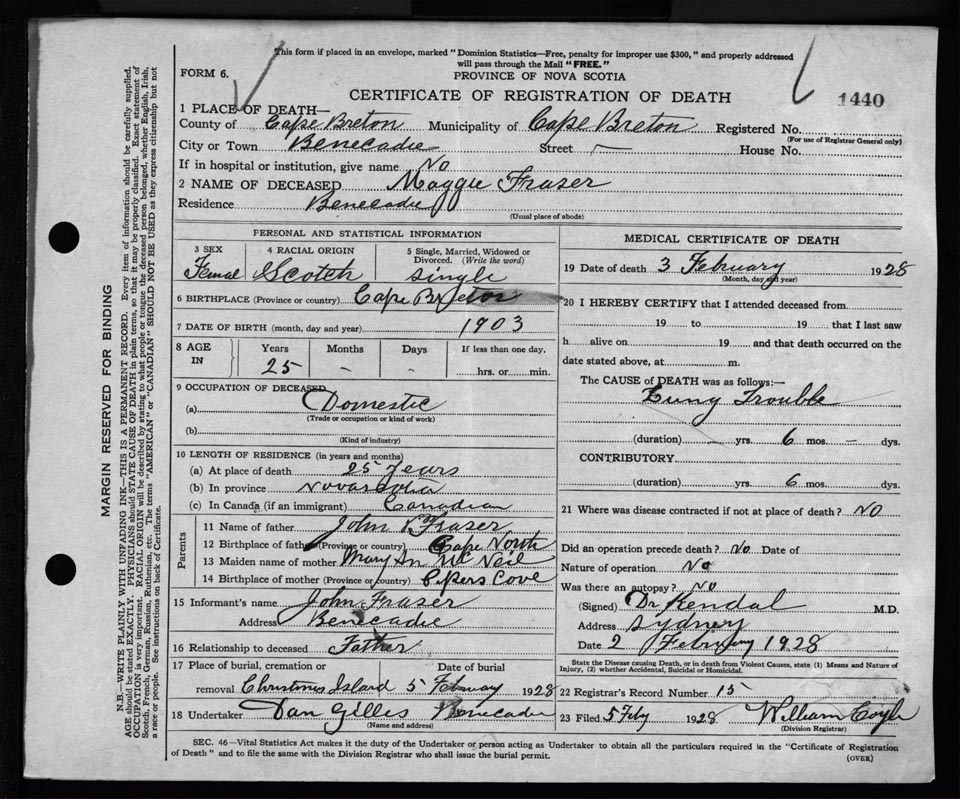 This form if placed in an envelope, marked "Dominion Statistics—Free, penalty for improper use $300," and properly addressed
will pass through the Mail "FREE."
FORM 6.
PROVINCE OF NOVA SCOTIA
CERTIFICATE OF REGISTRATION OF DEATH
1440
1 PLACE OF DEATH—
County of Cape Breton Municipality of Cape Breton Registered No.
(For use of Registrar General only)
City or Town Benecadie Street — House No.
If in hospital or institution, give name No
2 NAME OF DECEASED Maggie Fraser
Residence Benecadie
(Usual place of abode)
PERSONAL AND STATISTICAL INFORMATION
3 SEX 4 RACIAL ORIGIN 5 Single, Married, Widowed or Divorced. (Write the word)
Femal Scotch single
6 BIRTHPLACE (Province or country) Cape Breton
7 DATE OF BIRTH (month, day and year) 1903
8 AGE IN Years Months Days If less than one day,
25 - - hrs. or min.
9 OCCUPATION OF DECEASED
(a) Domestic
(Trade or occupation or kind of work)
(b)
(Kind of industry)
10 LENGTH OF RESIDENCE (in years and months)
(a) At place of death 25 years
(b) In province Novascotia
(c) In Canada (if an immigrant) Canadian
Parents
11 Name of father John Fraser
12 Birthplace of father (Province or country) Cape North
13 Maiden name of mother Mary An Mc Neil
14 Birthplace of mother (Province or country) Pipers Cove
15 Informant's name John Fraser
Address Benecadie
16 Relationship to deceased Father
17 Place of burial, cremation or Date of burial
removal Christmas Island 5 February 1928
18 Undertaker Dan Gilles Benecadie
(Name and address)
MEDICAL CERTIFICATE OF DEATH
19 Date of death 3 February 1928
(Month, day and year)
20 I HEREBY CERTIFY that I attended deceased from
19 to 19 that I last saw
h alive on 19 and that death occurred on the
date stated above, at m.
The CAUSE of DEATH was as follows:—
Lung Trouble
(duration) — yrs. 6 mos. — dys.
CONTRIBUTORY
(duration) yrs. 6 mos. dys.
21 Where was disease contracted if not at place of death? NO
Did an operation precede death? No Date of
Nature of operation No
Was there an autopsy? NO
(Signed) Dr Kendal M.D.
Address Sydney
Date 2 February 1928
State the Disease causing Death, or in death from Violent Causes, state (1) Means and Nature of
Injury, (2) whether Accidental, Suicidal or Homicidal.
22 Registrar's Record Number 15
23 Filed 5 Feby 1928 William Coyle
(Division Registrar)
SEC. 46—Vital Statistics Act makes it the duty of the Undertaker or person acting as Undertaker to obtain all the particulars required in the "Certificate of Registration
of Death" and to file the same with the Division Registrar who shall issue the burial permit.
(OVER)
MARGIN RESERVED FOR BINDING
N.B.—WRITE PLAINLY WITH UNFADING INK—THIS IS A PERMANENT RECORD. Every item of information should be carefully supplied.
AGE should be stated EXACTLY. PHYSICIANS should STATE CAUSE OF DEATH in plain terms, so that it may be properly classified. Exact statement of
OCCUPATION is very important. RACIAL ORIGIN will be described by stating to what people or tongue the deceased person belonged, whether English, Irish,
Scotch, French, German, Russian, Ruthenian, etc. The terms "AMERICAN" or "CANADIAN" SHOULD NOT BE USED as they express citizenship but not
a race or people. See instructions on back of Certificate.